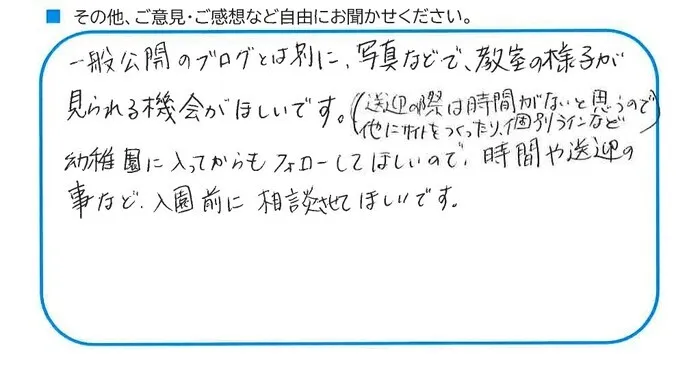 ■ その他、ご意見・ご感想など自由にお聞かせください。
一般公開のブログとは別に、写真などで、教室の様子が
見られる機会がほしいです。(送迎の際は時間がないと思うので
他にサイトをつくったり、個別ラインなど)
幼稚園に入ってからもフォローしてほしいので、時間や送迎の
事など、入園前に相談させてほしいです。